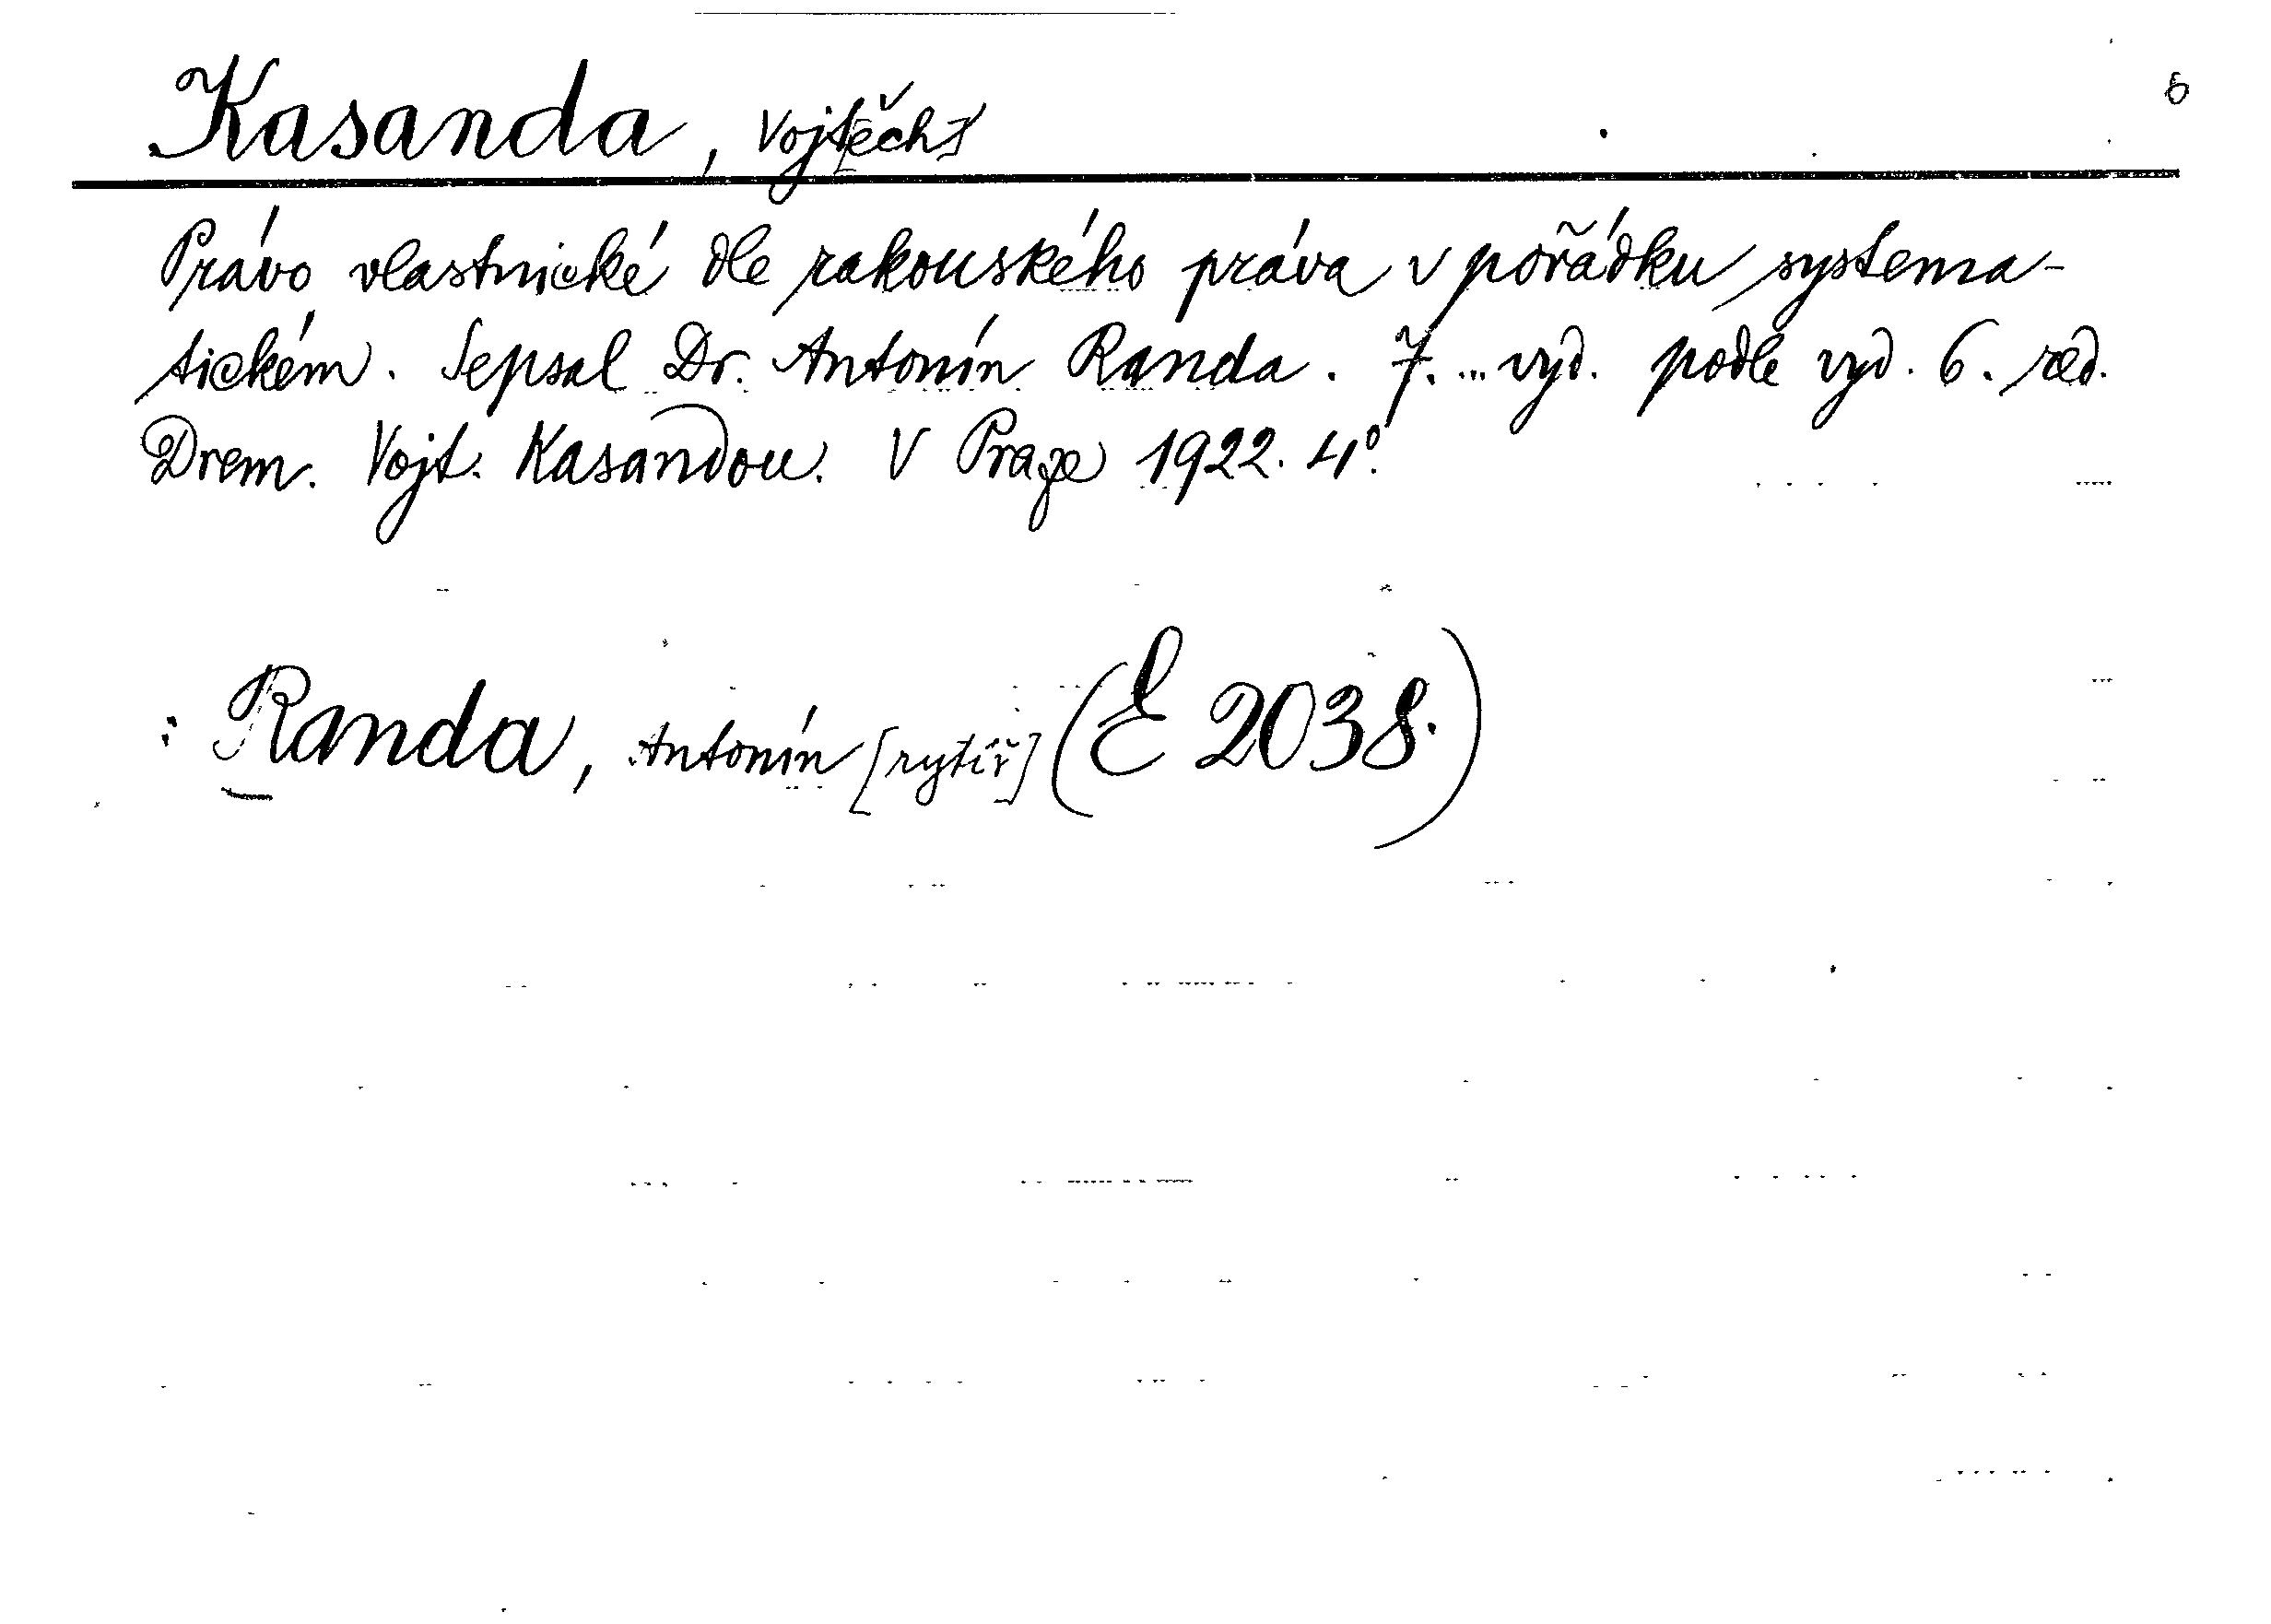 6
Kasanda, Vojt[ěch]
Právo vlastnické dle rakouského práva v pořádku systema-
tickém. Sepsal Dr. Antonín Randa. 7. ... vyd. podlé vyd. 6. red.
Drem. Vojt. Kasandou. V Praze 1922. 4°.
: Randa, Antonín [rytíř] (E 2038.)